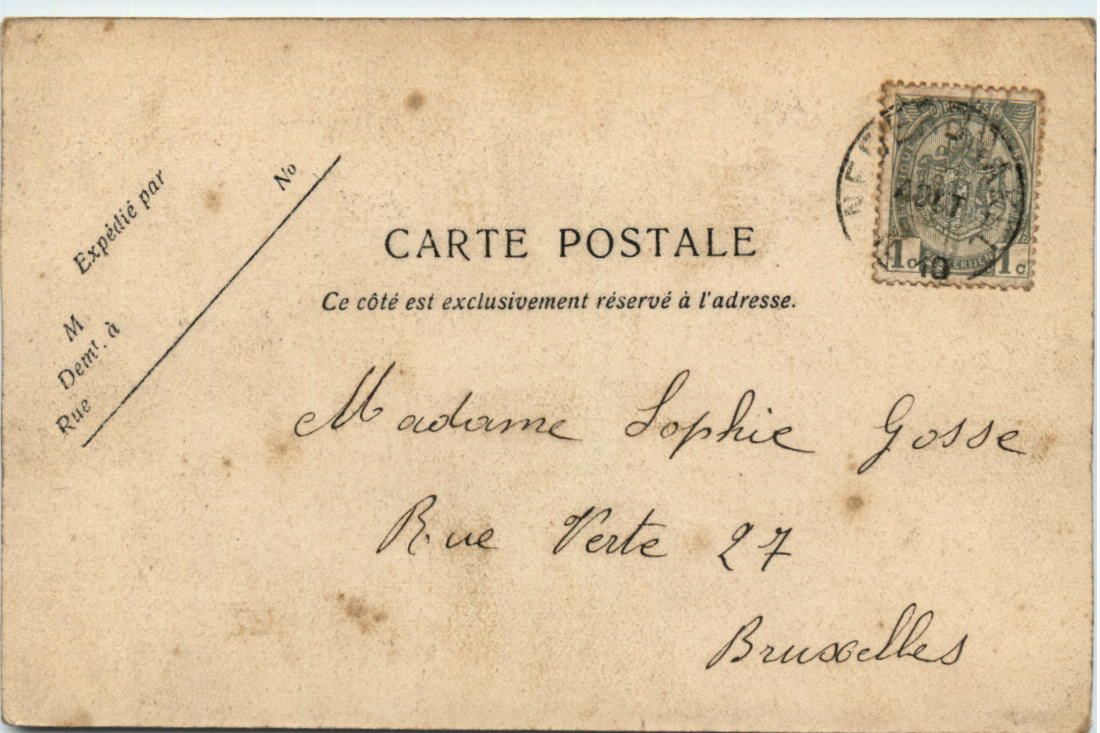 Expédié par
No
M
Demt. à
Rue
CARTE POSTALE
Ce côté est exclusivement réservé à l'adresse.
POSTES
1c 1c
AOUT
10
Madame Sophie Gosse
Rue Verte 27
Bruxelles